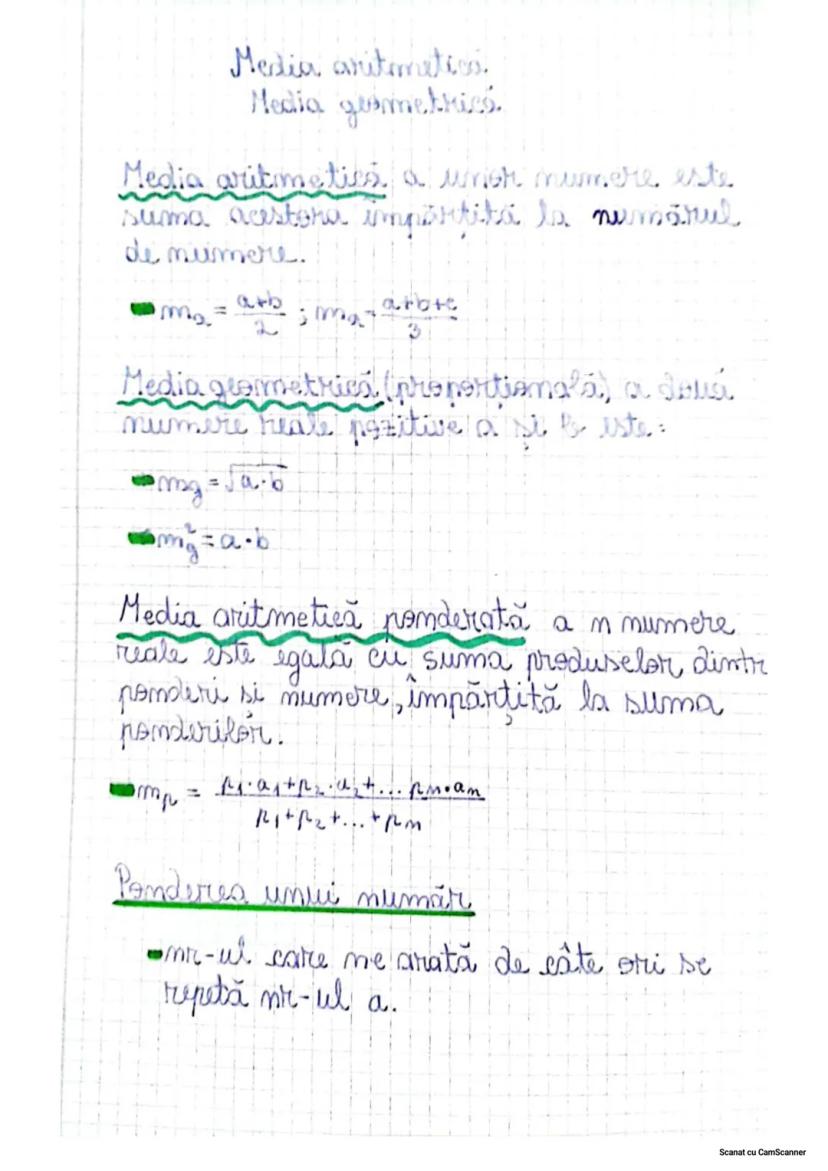 Media aritmetică.
Media geometrică.
Media aritmetică a unor numere este
suma acestora împărțită la numărul
de numere.
mₐ = a+b/2 ; mₐ = a+b+c/3
Media geometrică (proporțională) a două
numere reale pozitive a și b este:
mg = √a·b
m²g = a·b
Media aritmetică ponderată a n numere
reale este egală cu suma produselor dintr
ponderi si numere, împărțită la suma
ponderilor.
mₚ = p₁·a₁+p₂·a₂+... pₙ·aₙ
p₁+p₂+...+pₙ
Ponderea unui număr
nr-ul care ne arată de câte ori se
repetă nr-ul a.
Scanat cu CamScanner